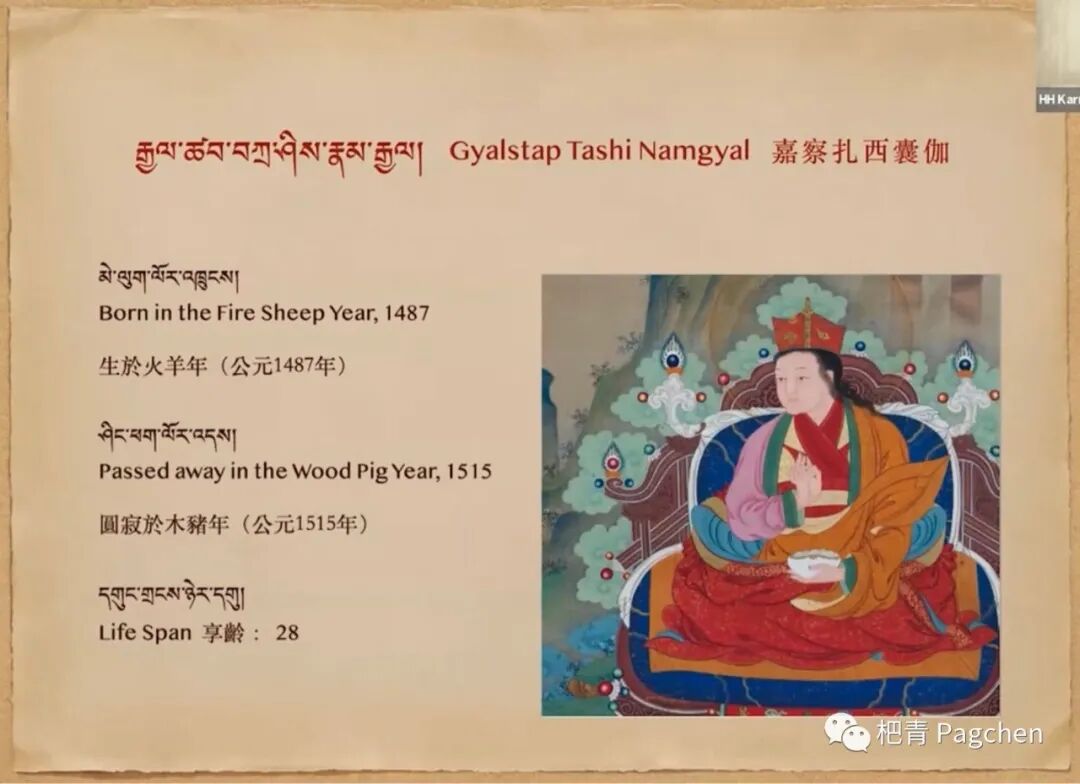 རྒྱལ་ཚབ་བཀྲ་ཤིས་རྣམ་རྒྱལ། Gyalstap Tashi Namgyal 嘉察扎西囊伽
HH Kar
མེ་ལུག་ལོར་འཁྲུངས།
Born in the Fire Sheep Year, 1487
生於火羊年（公元1487年）
ཤིང་ཕག་ལོར་འདས།
Passed away in the Wood Pig Year, 1515
圓寂於木豬年（公元1515年）
དགུང་གྲངས་ཉེར་དགུ།
Life Span 享齡： 28
杷青 Pagchen